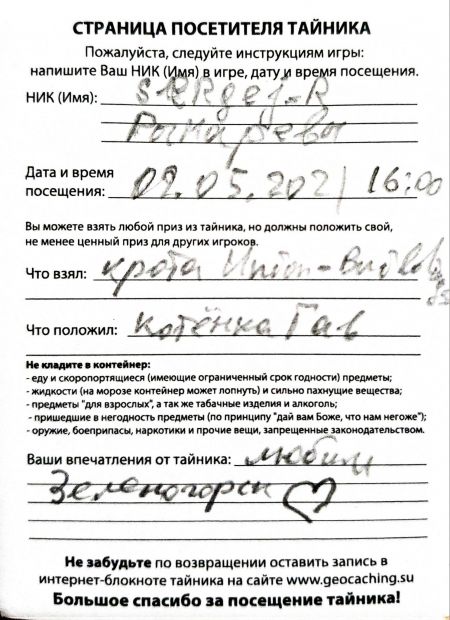 СТРАНИЦА ПОСЕТИТЕЛЯ ТАЙНИКА
Пожалуйста, следуйте инструкциям игры:
напишите Ваш НИК (Имя) в игре, дату и время посещения.
НИК (Имя): sERgej-R
Дата и время
посещения: 09.05.2021 16:00
Вы можете взять любой приз из тайника, но должны положить свой,
не менее ценный приз для других игроков.
Что взял: крота Union-
Что положил: котёнка Гав
Не кладите в контейнер:
- еду и скоропортящиеся (имеющие ограниченный срок годности) предметы;
- жидкости (на морозе контейнер может лопнуть) и сильно пахнущие вещества;
- предметы "для взрослых", а так же табачные изделия и алкоголь;
- пришедшие в негодность предметы (по принципу "дай вам Боже, что нам негоже");
- оружие, боеприпасы, наркотики и прочие вещи, запрещенные законодательством.
Ваши впечатления от тайника: любим
Зеленогорск
Не забудьте по возвращении оставить запись в
интернет-блокноте тайника на сайте www.geocaching.su
Большое спасибо за посещение тайника!